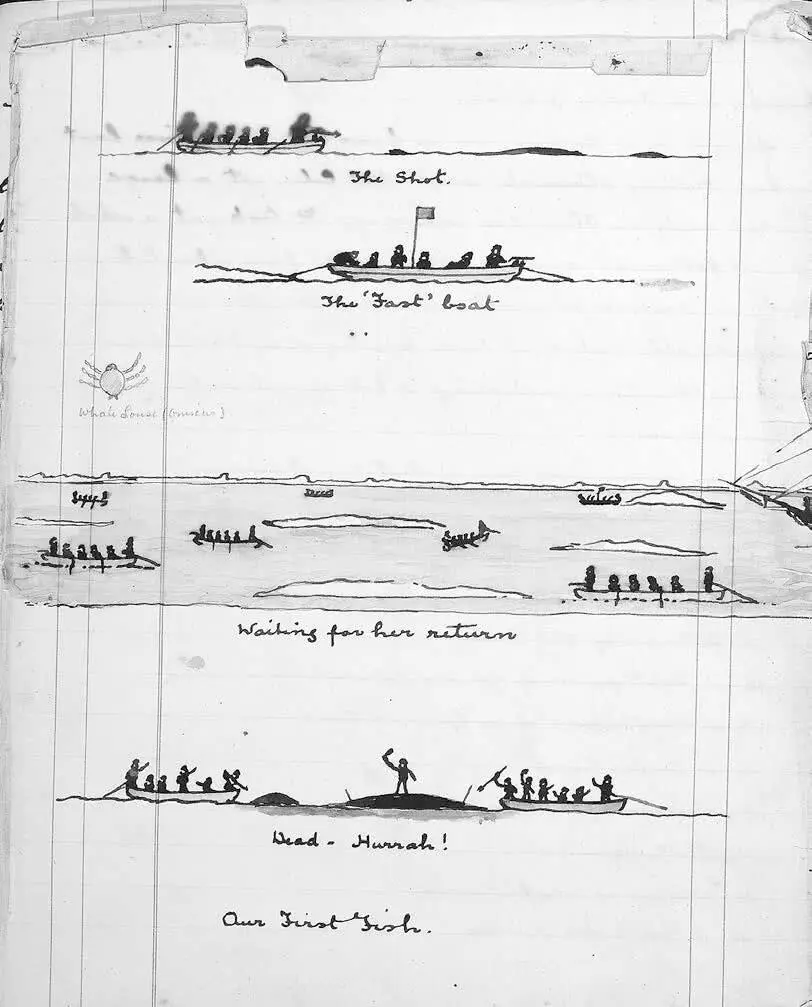 The Shot.
The 'Fast' boat
Whale Louse (
Waiting for her return
Dead - Hurrah!
Our First Fish.